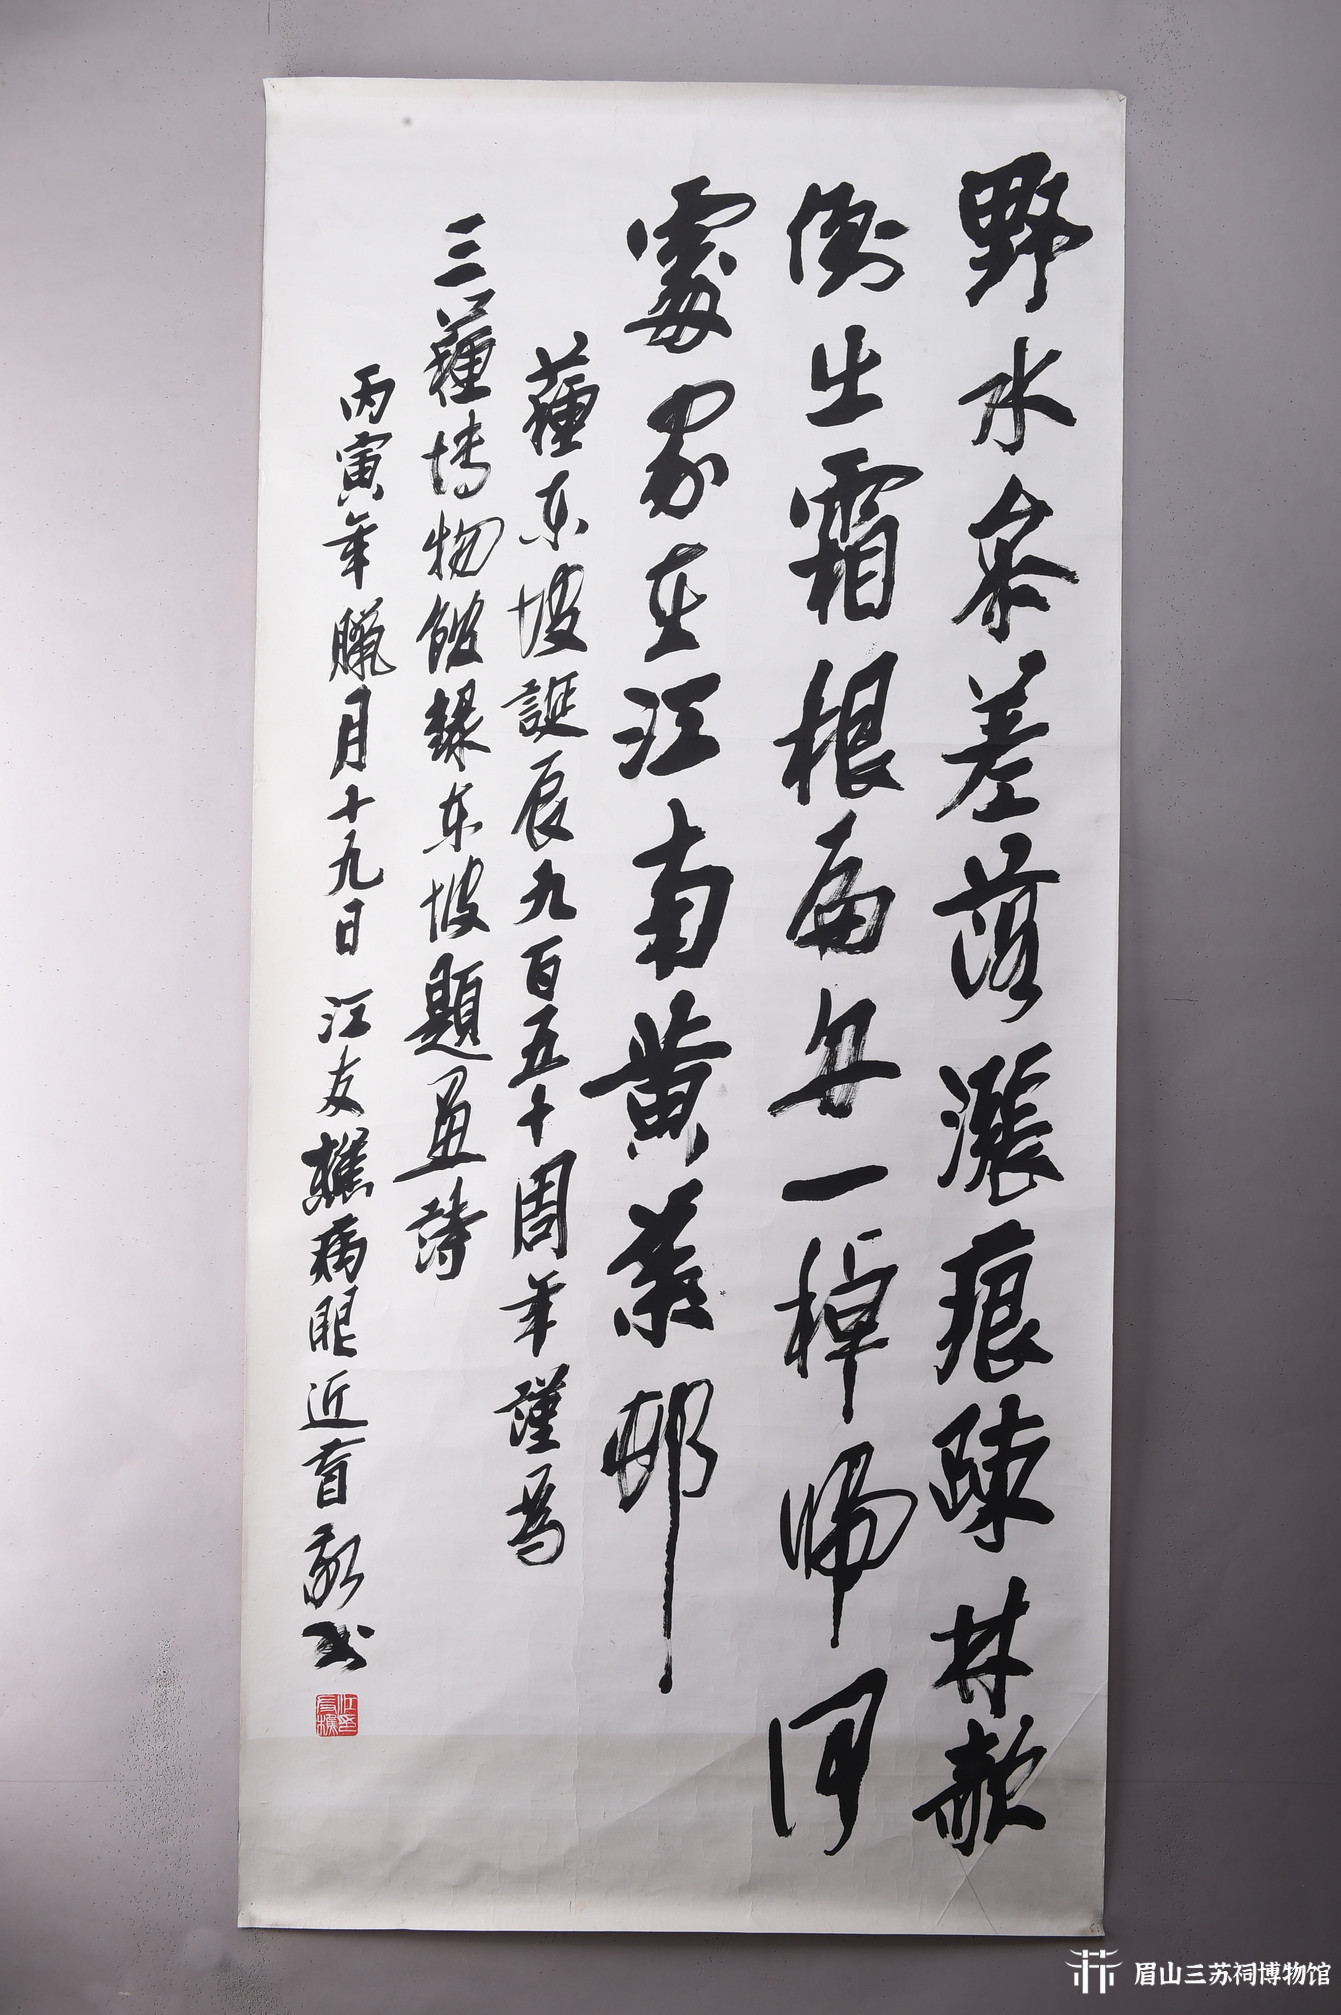 野水參差落漲痕疎林欹
倒出霜根扁舟一棹歸何
處家在江南黃葉邨
蘇東坡誕辰九百五十周年謹爲
三蘇博物館錄东坡題画詩
丙寅年臘月十九日 江友樵病眼近盲敬书
江友樵印
眉山三苏祠博物馆